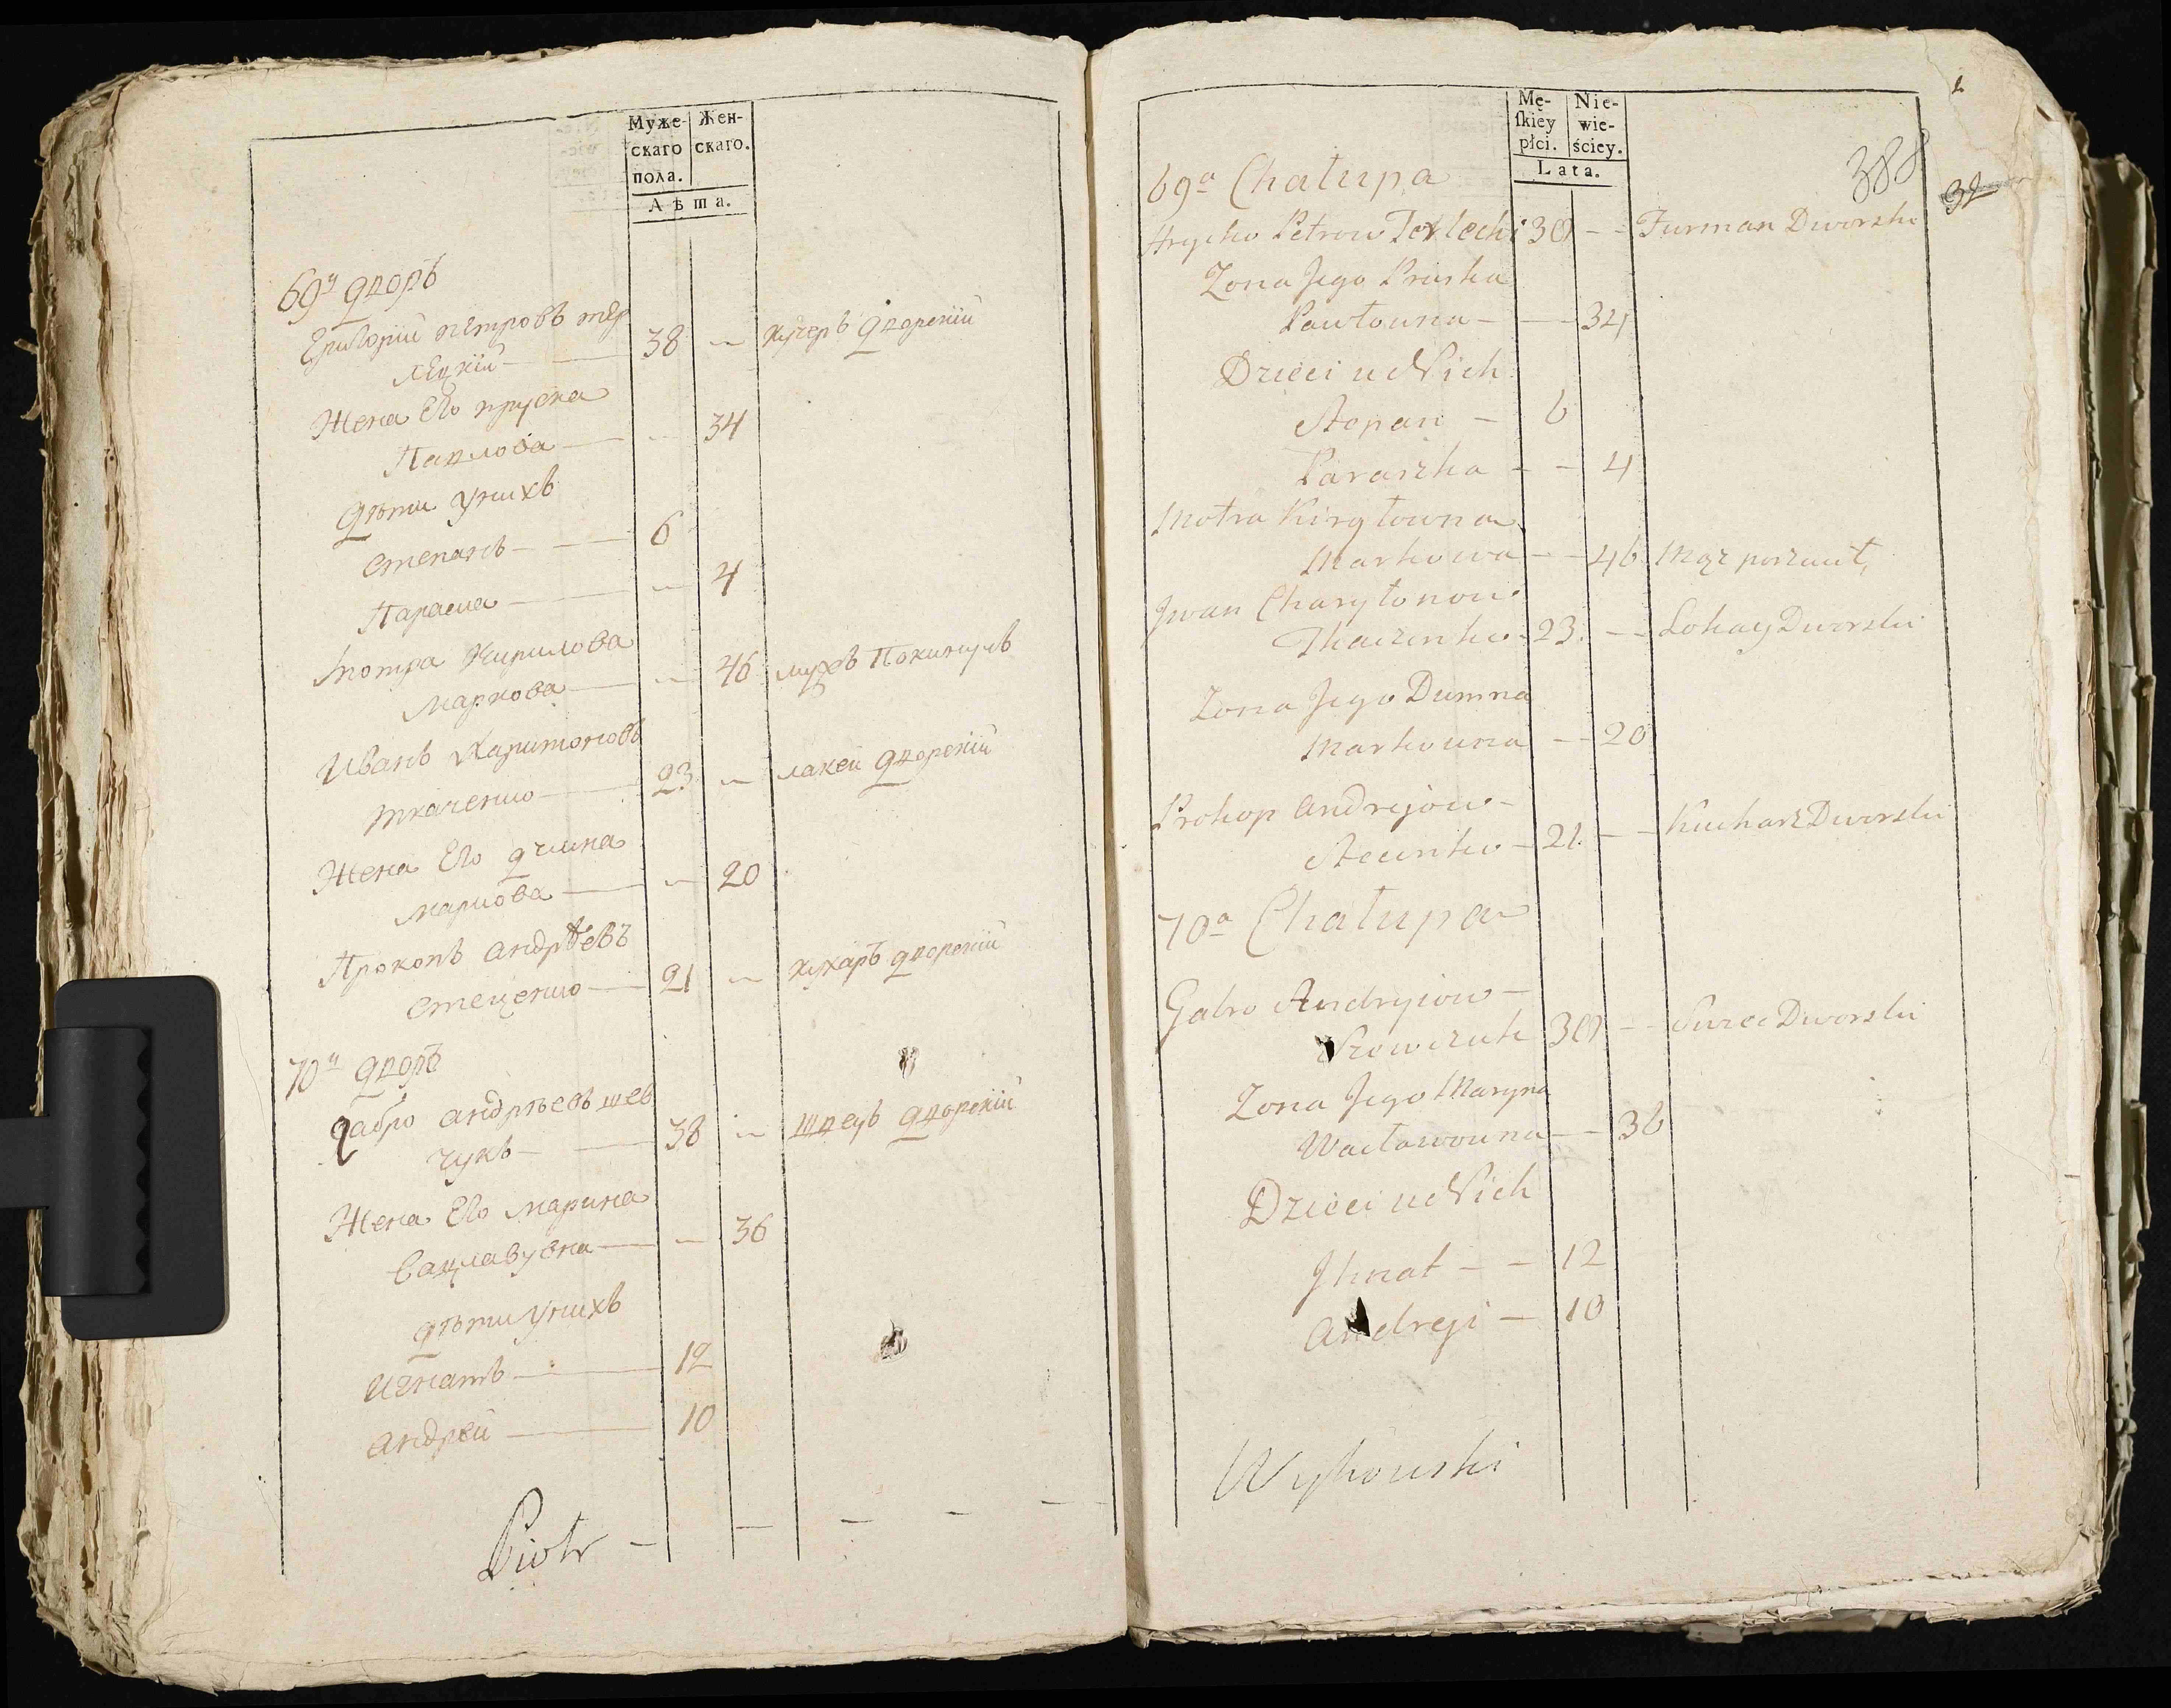 Муже- Жен-
скаго скаго.
пола.
Лѣта.
69й дворъ
Григорій петровъ тер
лецкій — 38 — кучеръ дворскій
Жена Его пруска
Павлова — — 34
дѣти унихъ
степанъ — 6
Параска — — 4
мотра Кирилова
маркова — — 46 мужъ покинулъ
Иванъ Харитоновъ
ткаченко — 23 — лакей дворскій
Жена Его думна
маркова — — 20
Прокопъ андрѣевъ
стеценко — 21 — кухаръ дворскій
70й дворъ
Габро андрѣевъ шев
чукъ — 38 — швецъ дворскій
Жена Его марина
вацлавувна — — 36
дѣти унихъ
игнатъ — 12
андрей — 10
Piotr — — — — —
Mę- Nie-
ſkiey wie-
płci. ściey.
Lata.
388
32
69a Chałupa
Hrycko Petrow Terlecki 38 — Furman Dworski
Zona Jego Pruska
Pawłowna — — 34
Dzieci u Nich
Stepan — 6
Paraszka — — 4
Motra Kiryłowna
Markowa — — 46 Mąz porzucił,
Jwan Charytonow
Tkaczenko — 23. — Lokay Dworski
Zona Jego Dumna
Markowna — — 20
Prokop Andrejow —
Stecenko — 21. — Kucharz Dworski
70a Chałupa
Gabro Andryiow —
Szewczuk 38 — Szwec Dworski
Zona Jego Maryna
Wacławowna — — 36
Dzieci u Nich
Jhnat — — 12
Andreji — 10
Wyhowski